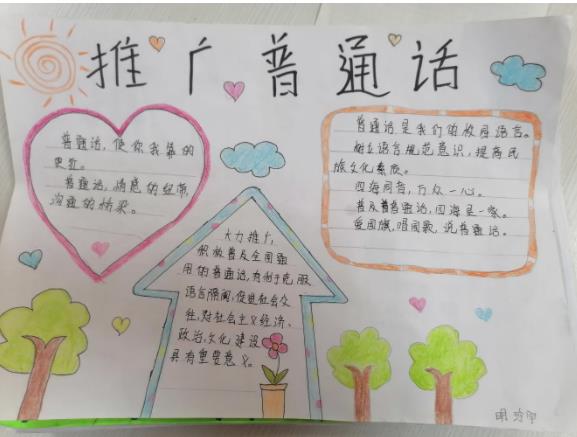 推广普通话
普通话,使你我靠的
更近。
普通话,情感的纽带,
沟通的桥梁。
大力推广,
积极普及全国通
用的普通话,有利于克服
语言隔阂,促进社会交
往,对社会主义经济、
政治、文化建设
具有重要意义。
普通话是我们的校园语言。
树立语言规范意识,提高民
族文化素质。
四海同音,万众一心。
普及普普通话,四海是一家。
爱国旗,唱国歌,说普通话。